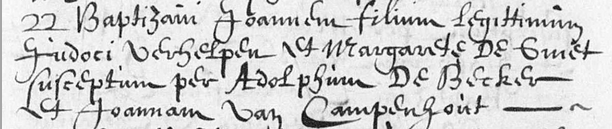 22 Baptizavi Joannem filium legittimum
Judoci Verhelpen et Margarete De Smet
susceptum per Adolphum De Becker
et Joannam van Campenhout